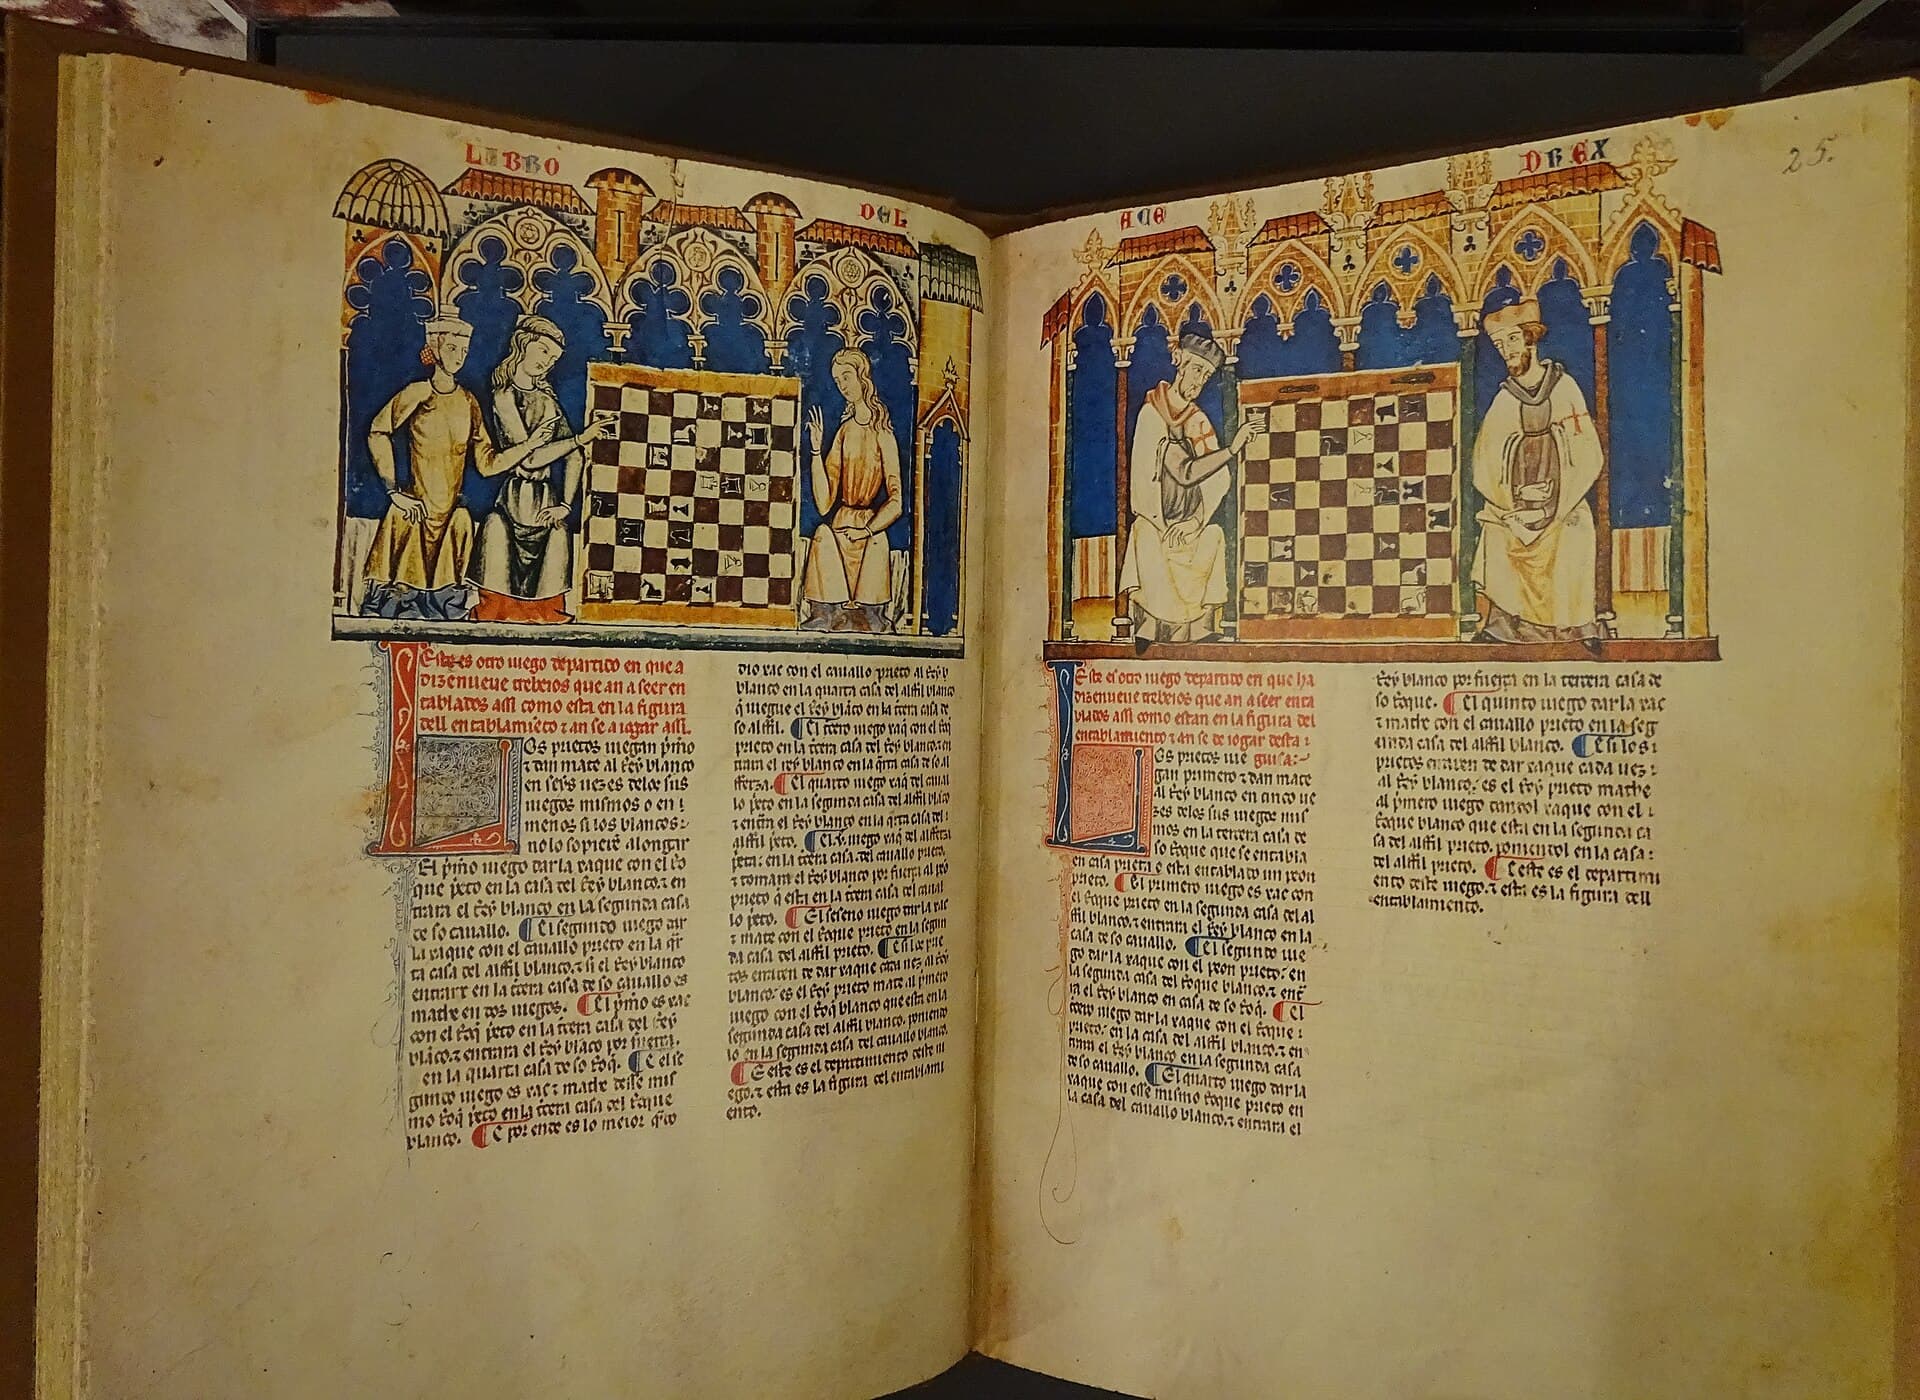 LIBRO
DEL
Este es otro iuego departido en que a
dizenueue trebeios que an a seer en
tablados assi como esta en la figura
dell entablamieto ⁊ an se a iogar assi.
Os prietos iuegan pmo
⁊ dan mate al Rey blanco
en seys uezes delos sus
iuegos mismos o en
menos si los blancos
nolo sopiere alongar
El pmo iuego dar la xaque con el Ro
que pto en la casa del Rey blanco. ⁊ en
trara el Rey blanco en la segunda casa
de so cauallo. El segundo iuego dar
la xaque con el cauallo prieto en la qr
ta casa del alffil blanco. ⁊ si el Rey blanco
entrare en la tcera casa de so cauallo es
mathe en dos iuegos. El pmo es xac
con el Roq pto en la tcera casa del Rey
blaco. ⁊ entrara el Rey blaco por fuerça.
en la quarta casa de so Roq. E el se
gundo iuego es xac ⁊ mathe desse mis
mo Roq pto en la tcera casa del Roque
blanco. E por ende es lo meior qto
dio xac con el cauallo prieto al Rey
blanco en la quarta casa del alffil blanco
q iuegue el Rey blaco en la tcera casa de
so alffil. El tcero iuego xaq con el Roq
prieto en la tcera casa del Rey blanco. ⁊ en
trara el Rey blanco en la qrta casa de so al
fferza. El quarto iuego xaq del caual
lo pto en la segunda casa del alffil blaco
⁊ entra el Rey blanco en la qrta casa del
alffil pto. El v. iuego xaq del alfferza
prieta. en la tcera casa del cauallo prieto.
⁊ tomara el Rey blanco por fuerça al peo
prieto q esta en la tcera casa del caual
lo pto. El seseno iuego dar la xac
⁊ mate con el Roque prieto en la segun
da casa del alffil prieto. E si los prie
tos erraren de dar xaque cada uez al Rey
blanco. es el Rey prieto mate al pmero
iuego con el Roq blanco que esta en la
segunda casa del alffil blanco. poniendo
lo en la segunda casa del cauallo blanco.
E este es el departimiento deste iu
ego. ⁊ esta es la figura del entablami
ento.
ACE
DREX
25.
Este es otro iuego departido en que ha
dizenueue trebeios que an a seer enta
blados assi como estan en la figura del
entablamiento ⁊ an se de iogar desta
guisa.
Os prietos iue
gan primero ⁊ dan mate
al Rey blanco en cinco ue
zes delos sus iuegos mis
mos en la tercera casa de
so Roque que se entabla
en casa prieta o esta entablado un peon
prieto. El primero iuego es xac con
el Roque prieto en la segunda casa del al
ffil blanco. ⁊ entrara el Rey blanco en la
casa de so cauallo. El segundo iue
go dar la xaque con el peon prieto. en
la segunda casa del Roque blanco. ⁊ entr
ra el Rey blanco en casa de so Roq. El
tcero iuego dar la xaque con el Roque
prieto. en la casa del alffil blanco. ⁊ en
trara el Rey blanco en la segunda casa
de so cauallo. El quarto iuego dar la
xaque con esse mismo Roque prieto en
la casa del cauallo blanco. ⁊ entrara el
Rey blanco por fuerça en la tercera casa de
so Roque. El quinto iuego dar la xac
⁊ mathe con el cauallo prieto en la seg
unda casa del alffil blanco. E si los
prietos erraren de dar xaque cada uez
al Rey blanco. es el Rey prieto mathe
al pmero iuego con el xaque con el
Roque blanco que esta en la segunda ca
sa del alffil prieto. poniendol en la casa
del alffil prieto. E este es el departimi
ento deste iuego. ⁊ esta es la figura dell
entablamiento.